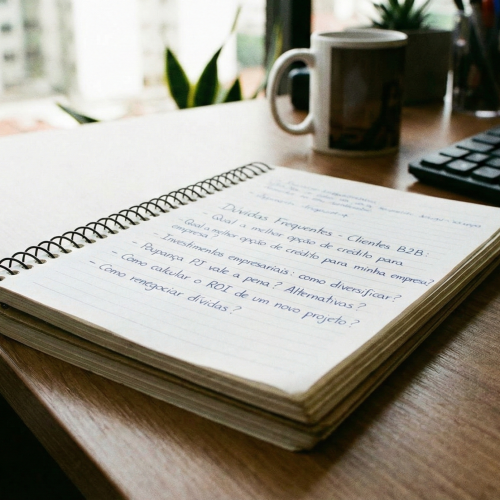 Dúvidas Frequentes - Clientes B2B:
- Qual a melhor opção de crédito para
- Qual a melhor opção de crédito para minha empresa?
empresa?
- Investimentos empresariais: como diversificar?
- Poupança PJ vale a pena? Alternativas?
- Como calcular o ROI de um novo projeto?
- Como renegociar dívidas?